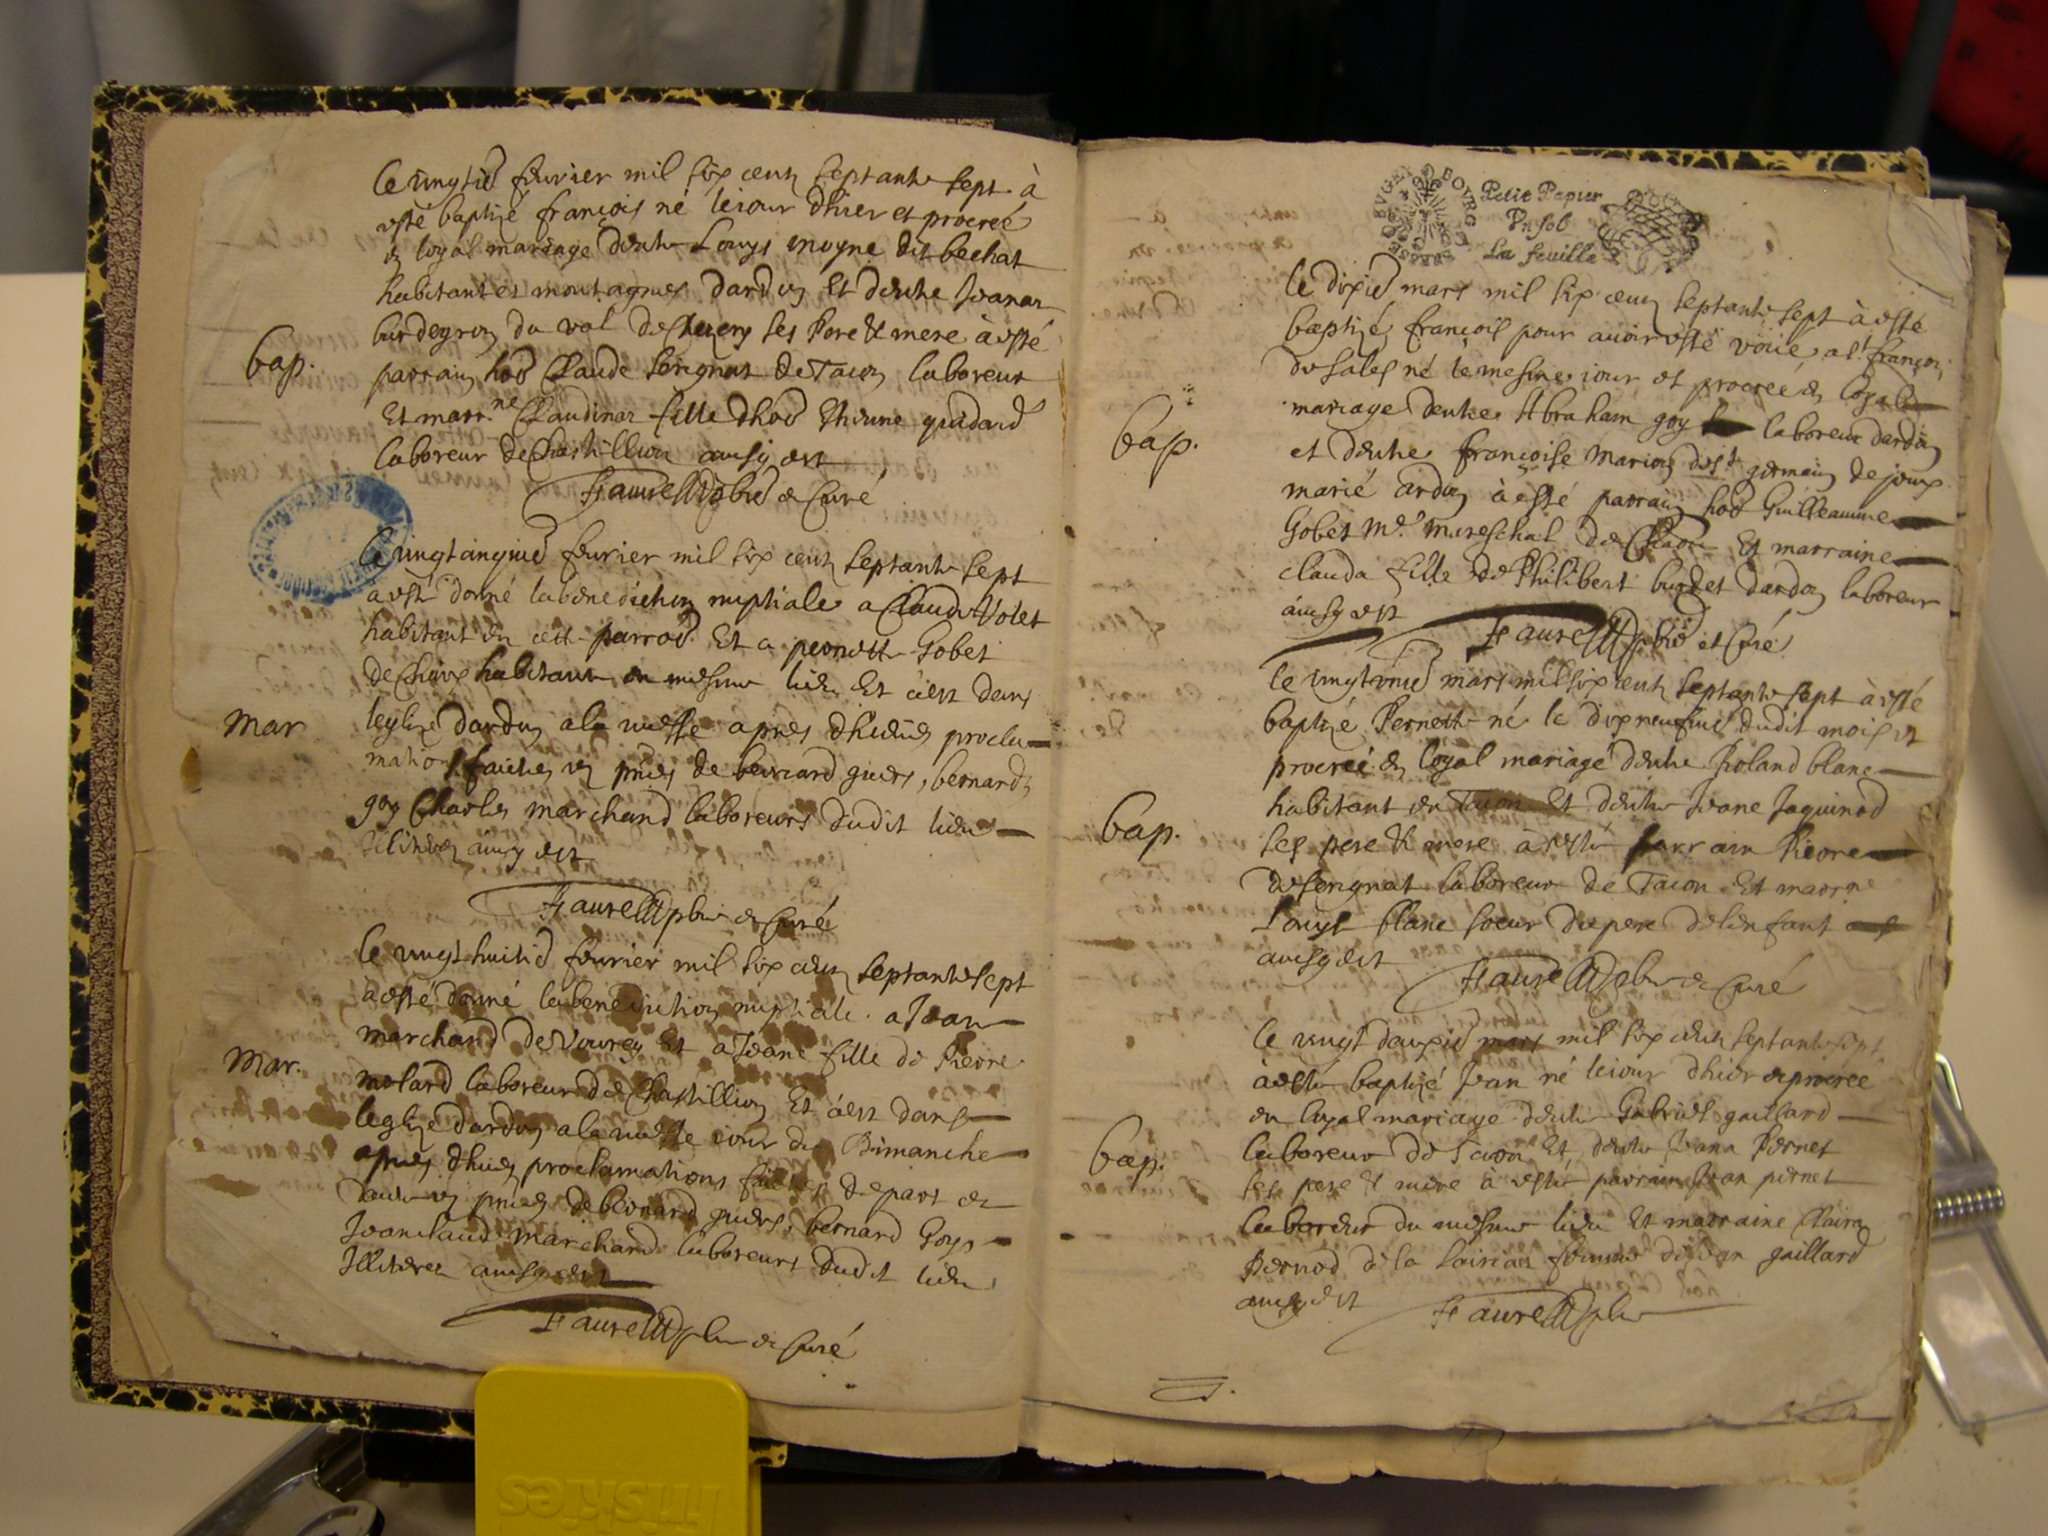 le vingtie febvrier mil six cent septante sept à
esté baptizé françois né le iour dhier et procreé
en loyal mariage dentre Louys moyne dit bechat
habitant es montagnes dardon Et dentre Jeana
burdeyron du val de Chezery ses Pere & mere à esté
bap.
parrain hoe Claude Serignat de Tacon laboreur
Et marr.ne Claudina fille dhoe Ethienne
laboreur de Chastillion ainsy est
Faure ptre & Curé
le vingtcinqie febvrier mil six cent septante sept
a esté donné la benediction nuptiale a Claude Volet
habitant en cette parroe. Et a pernette Gobet
de habitante en mesme lieu Et cest dans
mar
leglize dardon a la messe apres dheues procla
mations faictes en pnces de bernard , bernard
goy Charles marchand laboreurs dudit lieu
ainsy est
Faure ptre & Curé
le vingt huitie febvrier mil six cent septante sept
à esté donné la benediction nuptiale a Jean
marchand de Vouvray Et a Jeane fille de Pierre
mar.
molard laboreur de Chastillion Et cest dans
leglize dardon a la messe iour de Dimanche
apres dhues proclamations faictes de part et
dautre en pnces de bernard bernard Goy
Jean claude marchand laboreurs dudit lieu
Illiteres ainsy est
Faure ptre & Curé
BOURG BRESSE BUGEY
Petit Papier
Un sol
La feuille
le dixie mars mil six cent septante sept à esté
baptizé françois pour avoir esté voüé a St françois
de sales né le mesme iour et procreé en loyal
mariage dentre Abraham goy laboreur dardon
bap.
et dentre françoise marion de St germain de joux
marié ardon à esté parrain hoe Guilleaume
Gobet Me. mareschal de Et marraine
clauda fille de Philibert burdet dardon laboreur
ainsy est
Faure ptre et Curé
le vingtunie mars mil six cent septante sept à esté
baptizé Pernette né le dixneufvie dudit mois et
procreé en loyal mariage dentre Roland blanc
habitant en Tacon Et dentre Jeane Jaquinod
bap.
ses pere & mere a esté parrain Pierre
de serignat laboreur de Tacon Et marrne
Louyse blanc soeur du pere de lenfant
ainsy est
Faure ptre & Curé
le vingt deuxie mars mil six cent septante sept
à esté baptizé Jean né le iour dhier & procreé
en loyal mariage dentre Gabriel gaillard
laboreur de Tacon Et dentre Jeana Pernet
bap.
ses pere & mere à esté parrain Jean pernet
laboreur du mesme lieu Et marraine Claira
Pernod de la femme de Jean gaillard
ainsy est
Faure ptre
friskies